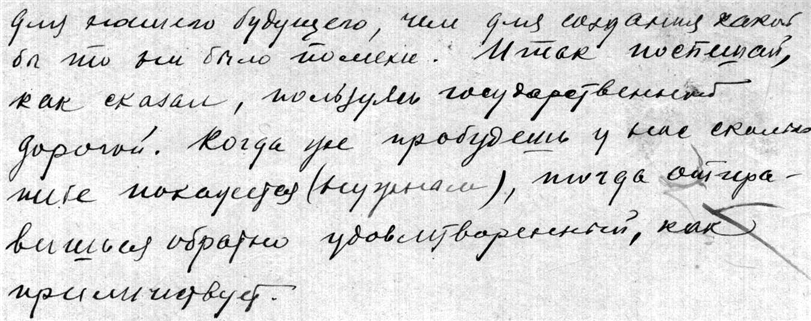 для нашего будущего, чем для создания какой
бы то ни было помехи. Итак поспешай,
как сказал, пользуясь государственной
дорогой. Когда уже пробудешь у нас сколько
тебе покажется (нужным), тогда отпра-
вишься обратно удовлетворенный, как
приличествует.